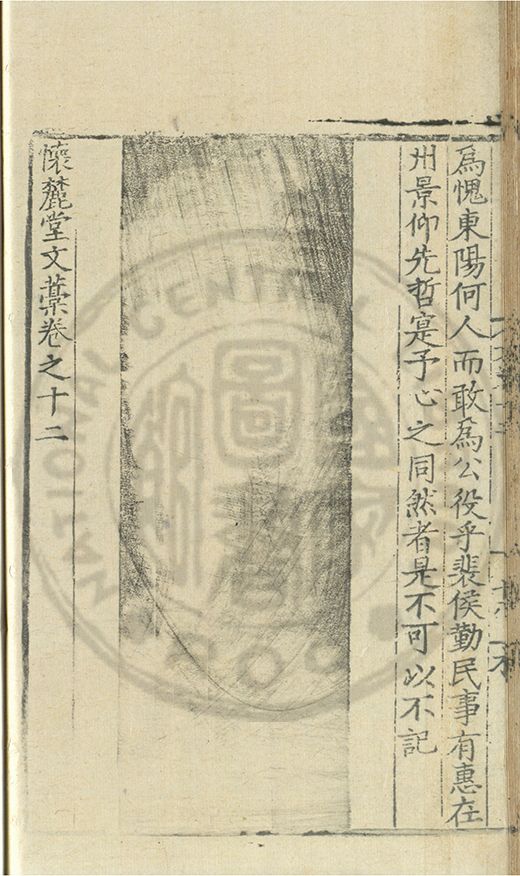 為愧東陽何人而敢為公役乎裴侯勤民事有惠在
州景仰先哲寔予心之同然者是不可以不記
懷麓堂文藁卷之十二